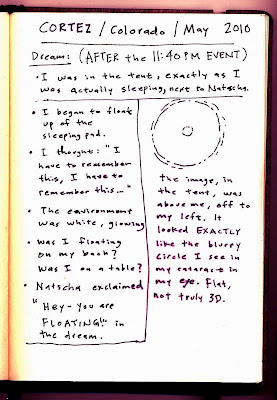 CORTEZ / Colorado / May 2010
Dream: (AFTER the 11:40 PM EVENT)
• I was in the tent, exactly as I
was actually sleeping, next to Natscha.
• I began to float
up of the
sleeping pad.
• I thought: "I
have to remember
this, I have to
remember this..."
• The environment
was white, glowing
• Was I floating
on my back?
Was I on a table?
• Natscha exclaimed
"Hey - you are
FLOATING!" in
the dream.
the image, in
the tent, was
above me, off to
my left. It
looked EXACTLY
like the blurry
circle I see in
my cataract in
my eye. Flat,
not truly 3D.